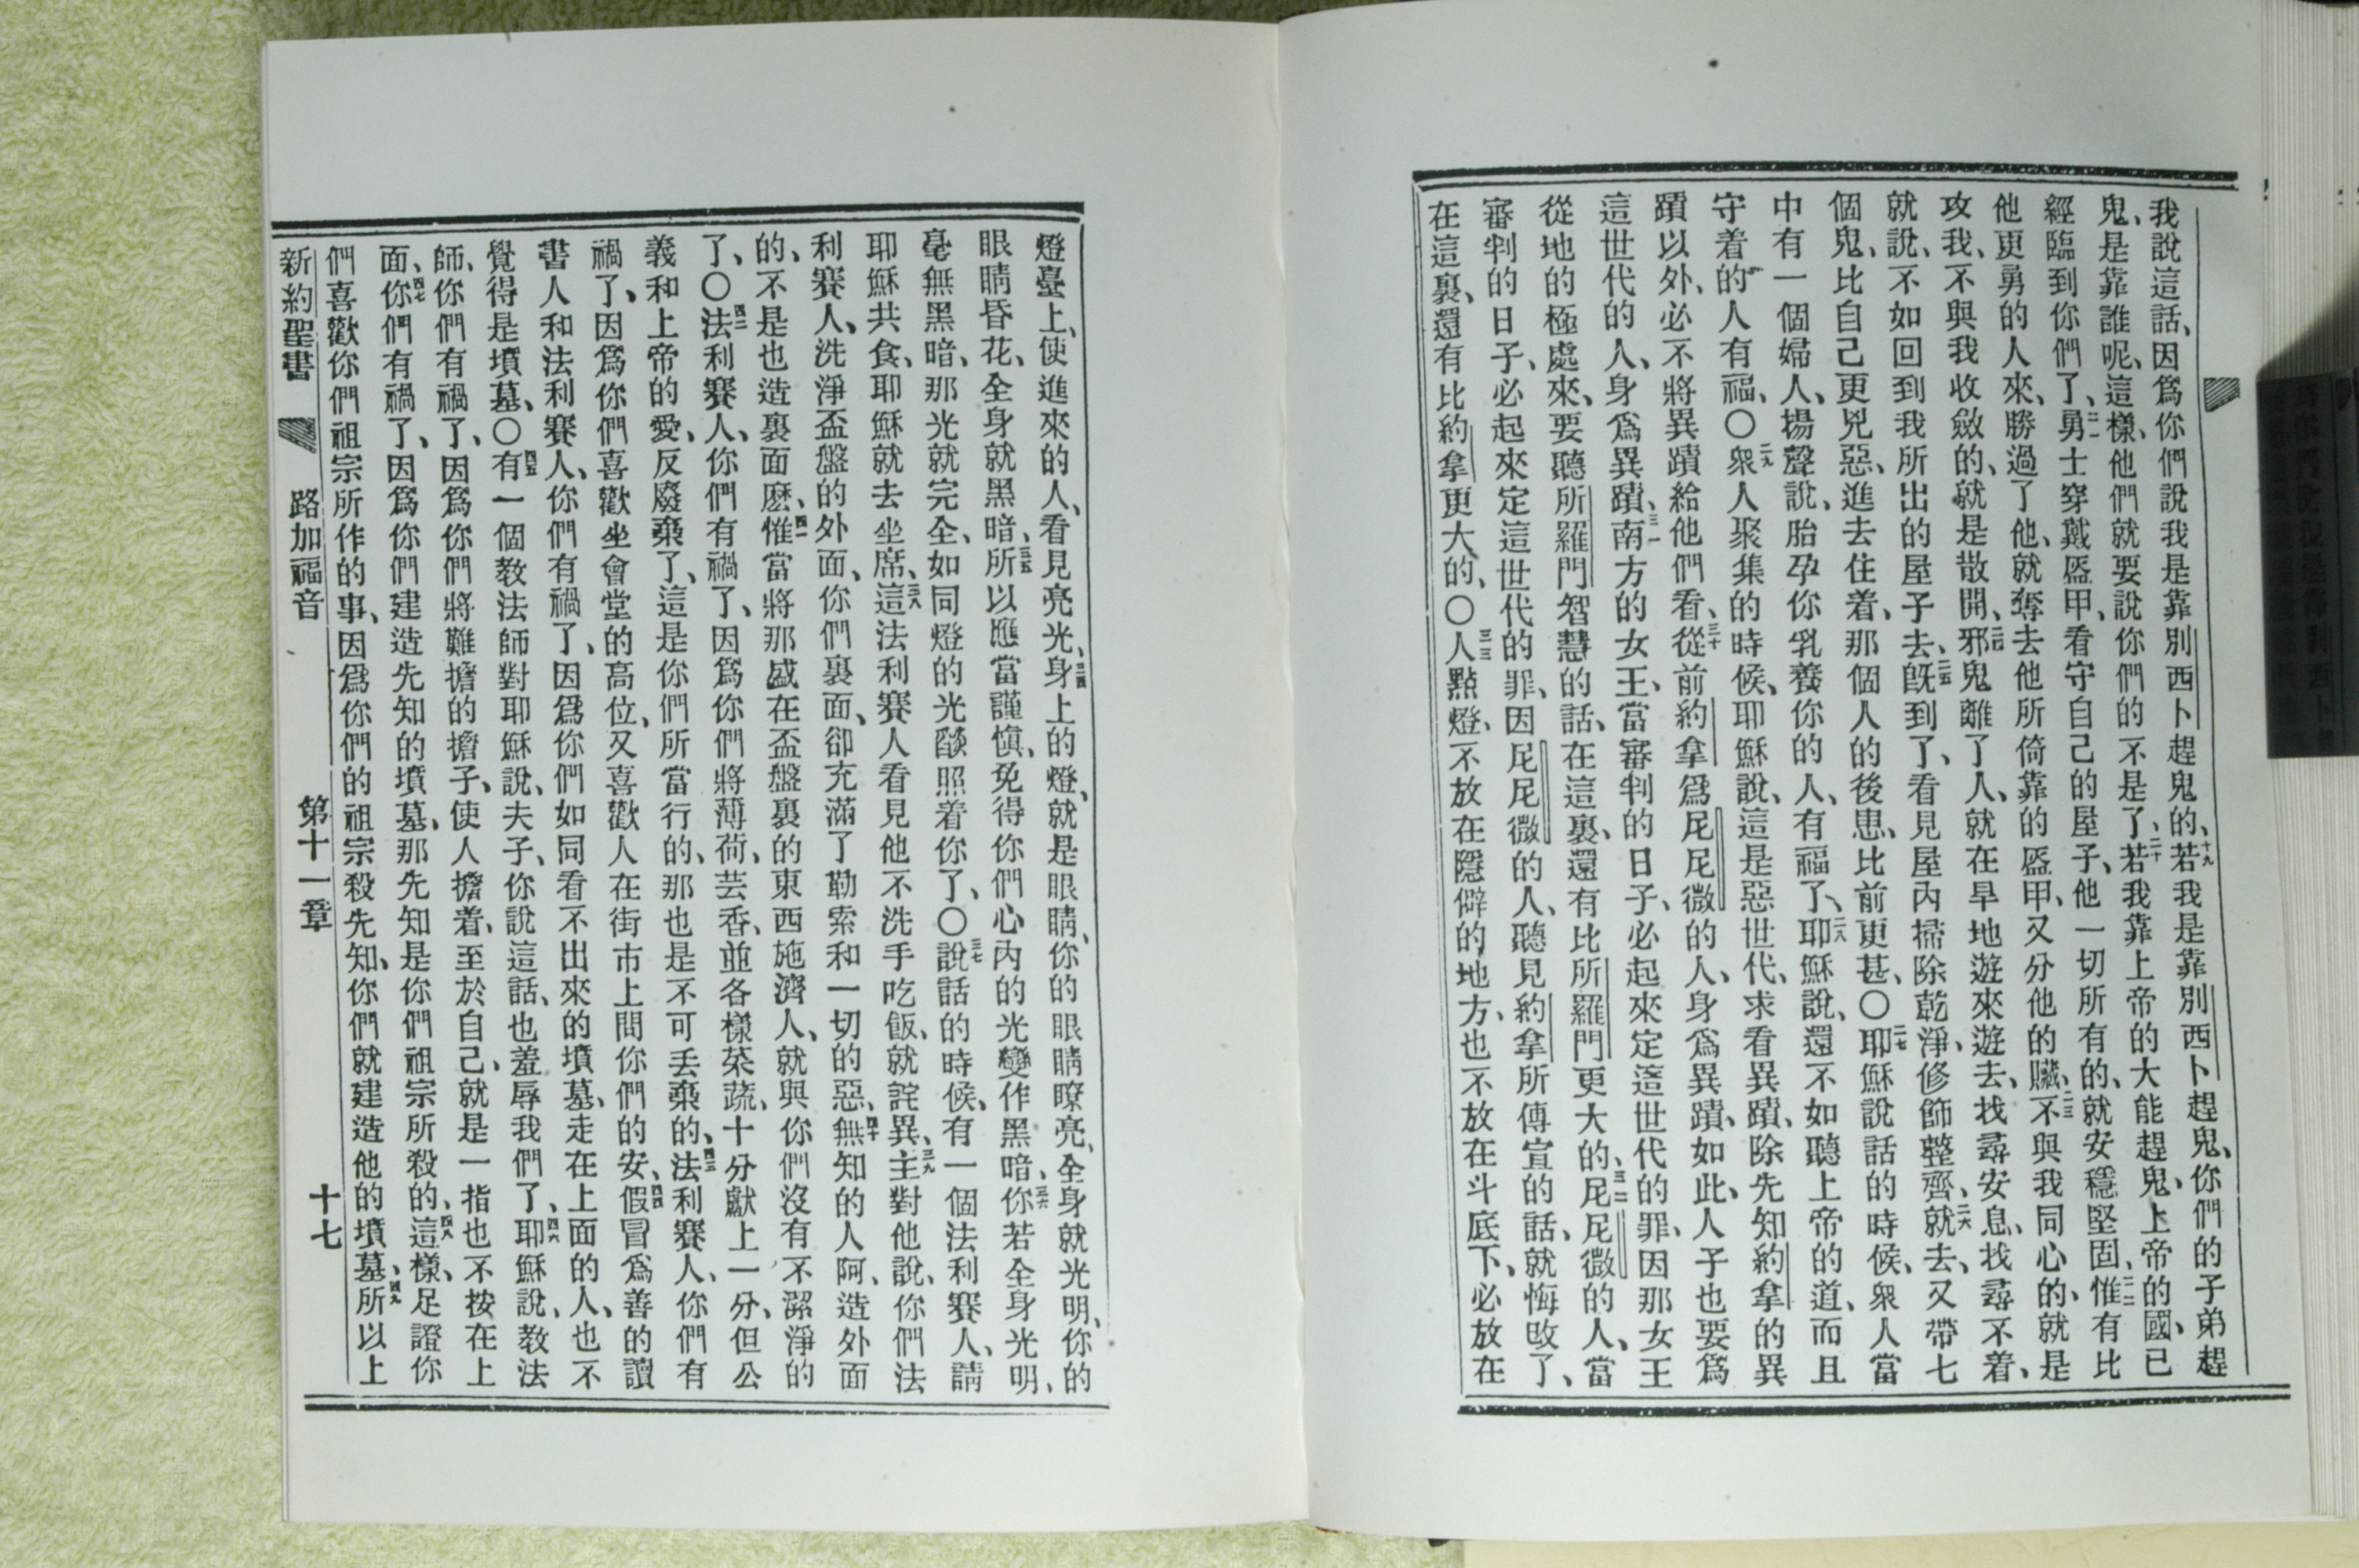 我說這話、因爲你們說我是靠別西卜趕鬼的、十九若我是靠別西卜趕鬼、你們的子弟趕
鬼、是靠誰呢、這樣、他們就要說你們的不是了、二十若我靠上帝的大能趕鬼、上帝的國、已
經臨到你們了、二一勇士穿戴盔甲、看守自己的屋子、他一切所有的、就安穩堅固、二二惟有比
他更勇的人來、勝過了他、就奪去他所倚靠的盔甲、又分他的贓、二三不與我同心的、就是
攻我、不與我收斂的、就是散開、二四邪鬼離了人、就在旱地遊來遊去、找尋安息、找尋不着、
就說、不如回到我所出的屋子去、二五旣到了、看見屋內掃除乾淨、修飾整齊、二六就去、又帶七
個鬼、比自己更兇惡、進去住着、那個人的後患、比前更甚、〇二七耶穌說話的時候、衆人當
中有一個婦人、揚聲說、胎孕你乳養你的人、有福了、二八耶穌說、還不如聽上帝的道、而且
守着的人有福、〇二九衆人聚集的時候、耶穌說、這是惡世代、求看異蹟、除先知約拿的異
蹟以外、必不將異蹟給他們看、三十從前約拿爲尼尼微的人、身爲異蹟、如此、人子也要爲
這世代的人、身爲異蹟、三一南方的女王、當審判的日子、必起來定這世代的罪、因那女王
從地的極處來、要聽所羅門智慧的話、在這裏、還有比所羅門更大的、三二尼尼微的人、當
審判的日子、必起來定這世代的罪、因尼尼微的人、聽見約拿所傳宣的話、就悔改了、
在這裏、還有比約拿更大的、〇三三人點燈、不放在隱僻的地方、也不放在斗底下、必放在
燈臺上、使進來的人、看見亮光、三四身上的燈、就是眼睛、你的眼睛瞭亮、全身就光明、你的
眼睛昏花、全身就黑暗、三五所以應當謹愼、免得你們心內的光變作黑暗、三六你若全身光明、
毫無黑暗、那光就完全、如同燈的光燄照着你了、〇三七說話的時候、有一個法利賽人、請
耶穌共食、耶穌就去坐席、三八這法利賽人看見他不洗手吃飯、就詫異、三九主對他說、你們法
利賽人、洗淨盃盤的外面、你們裏面、卻充滿了勒索和一切的惡、四十無知的人阿、造外面
的、不是也造裏面麽、四一惟當將那盛在盃盤裏的東西施濟人、就與你們沒有不潔淨的
了、〇四二法利賽人、你們有禍了、因爲你們將薄荷、芸香、並各樣菜蔬、十分獻上一分、但公
義和上帝的愛、反廢棄了、這是你們所當行的、那也是不可丟棄的、四三法利賽人、你們有
禍了、因爲你們喜歡坐會堂的高位、又喜歡人在街市上問你們的安、四四假冒爲善的讀
書人和法利賽人、你們有禍了、因爲你們如同看不出來的墳墓、走在上面的人、也不
覺得是墳墓、〇四五有一個敎法師對耶穌說、夫子、你說這話、也羞辱我們了、四六耶穌說、敎法
師、你們有禍了、因爲你們將難擔的擔子、使人擔着、至於自己、就是一指也不按在上
面、四七你們有禍了、因爲你們建造先知的墳墓、那先知是你們祖宗所殺的、四八這樣、足證你
們喜歡你們祖宗所作的事、因爲你們的祖宗殺先知、你們就建造他的墳墓、四九所以上
新約聖書 路加福音 第十一章 十七